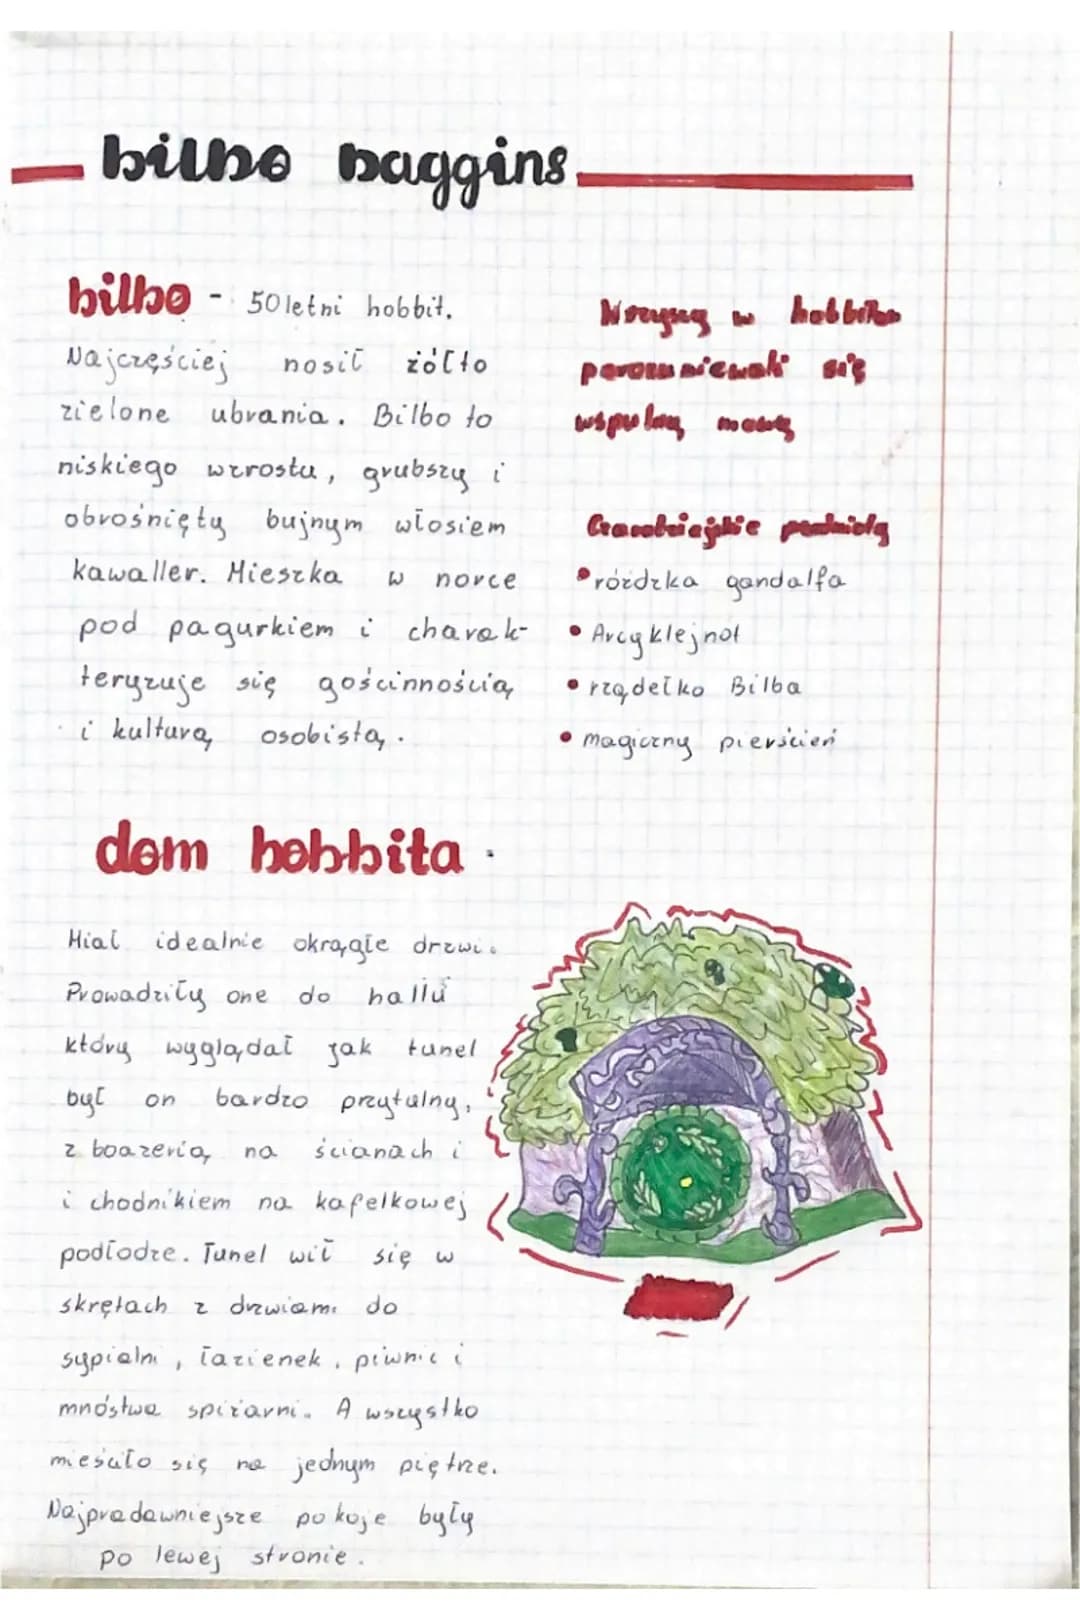 bilbo baggins
bilbo - 50letni hobbit.
Najczęściej nosił żółto
zielone ubrania. Bilbo to
niskiego wzrostu, grubszy i
obrośnięty bujnym włosiem
kawaller. Mieszka w norce
pod pagurkiem i charak-
teryzuje się gościnnością
i kulturą osobistą.
Wszyscy w hobbicie
porozumiewali się
wspulną mową
Czarodziejskie
•różdżka gandalfa
• Arcyklejnot
• rządełko Bilba
• magiczny pierścień
dom hobbita
Miał idealnie okrągłe drzwi.
Prowadziły one do hallu
który wyglądał jak tunel
był on bardzo przytulny,
z boazerią na ścianach i
i chodnikiem na kafelkowej
podłodze. Tunel wił się w
skrętach z drzwiami do
sypialni, łazienek, piwnic i
mnóstwa spiżarni. A wszystko
mieściło się na jednym piętrze.
Najpradawniejsze pokoje były
po lewej stronie.